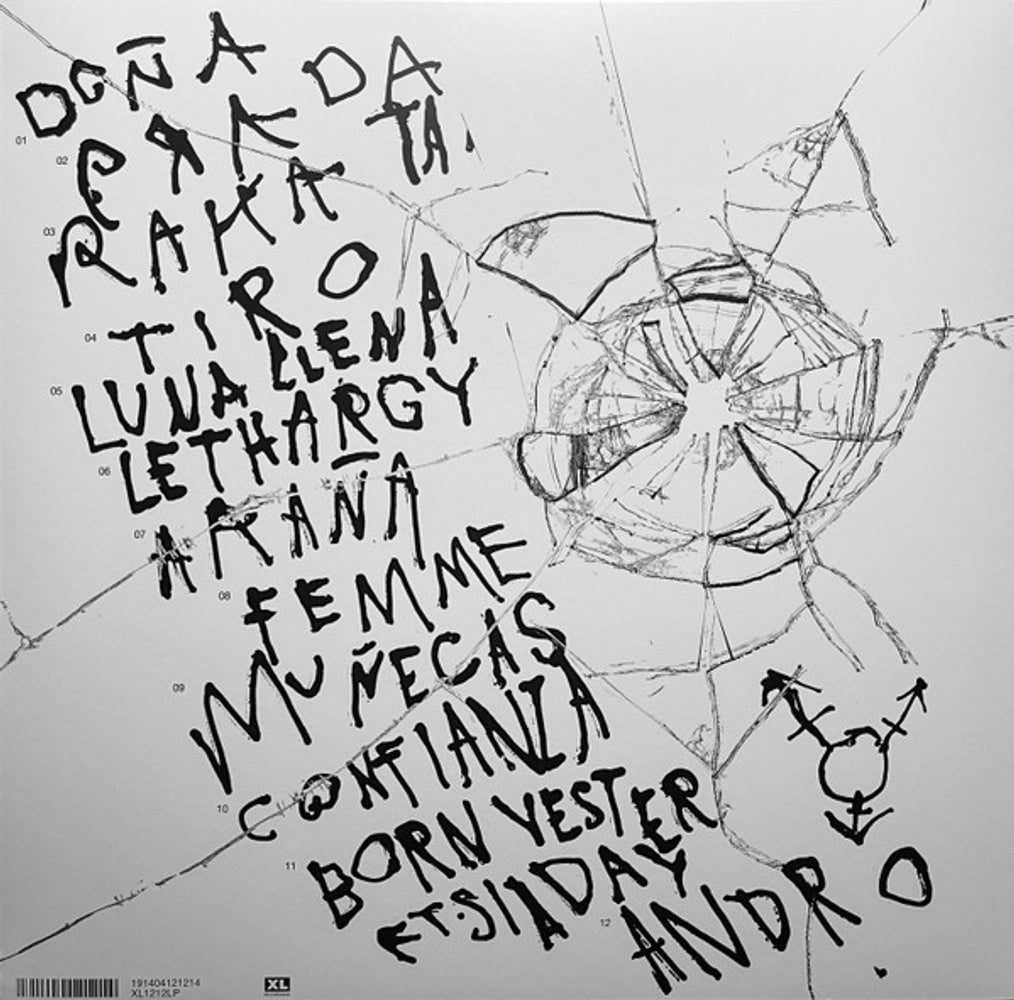 01 DOÑA
02 PRADA
03 RAKATA.
04 TIRO
05 LUNA LLENA
06 LETHARGY
07 ARAÑA
08 FEMME
09 MUÑECAS
10 CONFIANZA
11 BORN YESTER
FT. SIA DAY
12 ANDRO
191404121214
XL1212LP
XL